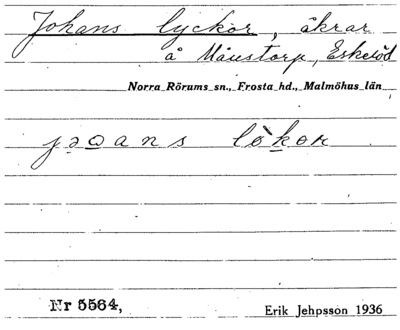 Johans lyckor, åkrar
å Månstorp, Eskeröd
Norra Rörums sn., Frosta hd., Malmöhus län
Nr 5564,
Erik Jehpsson 1936